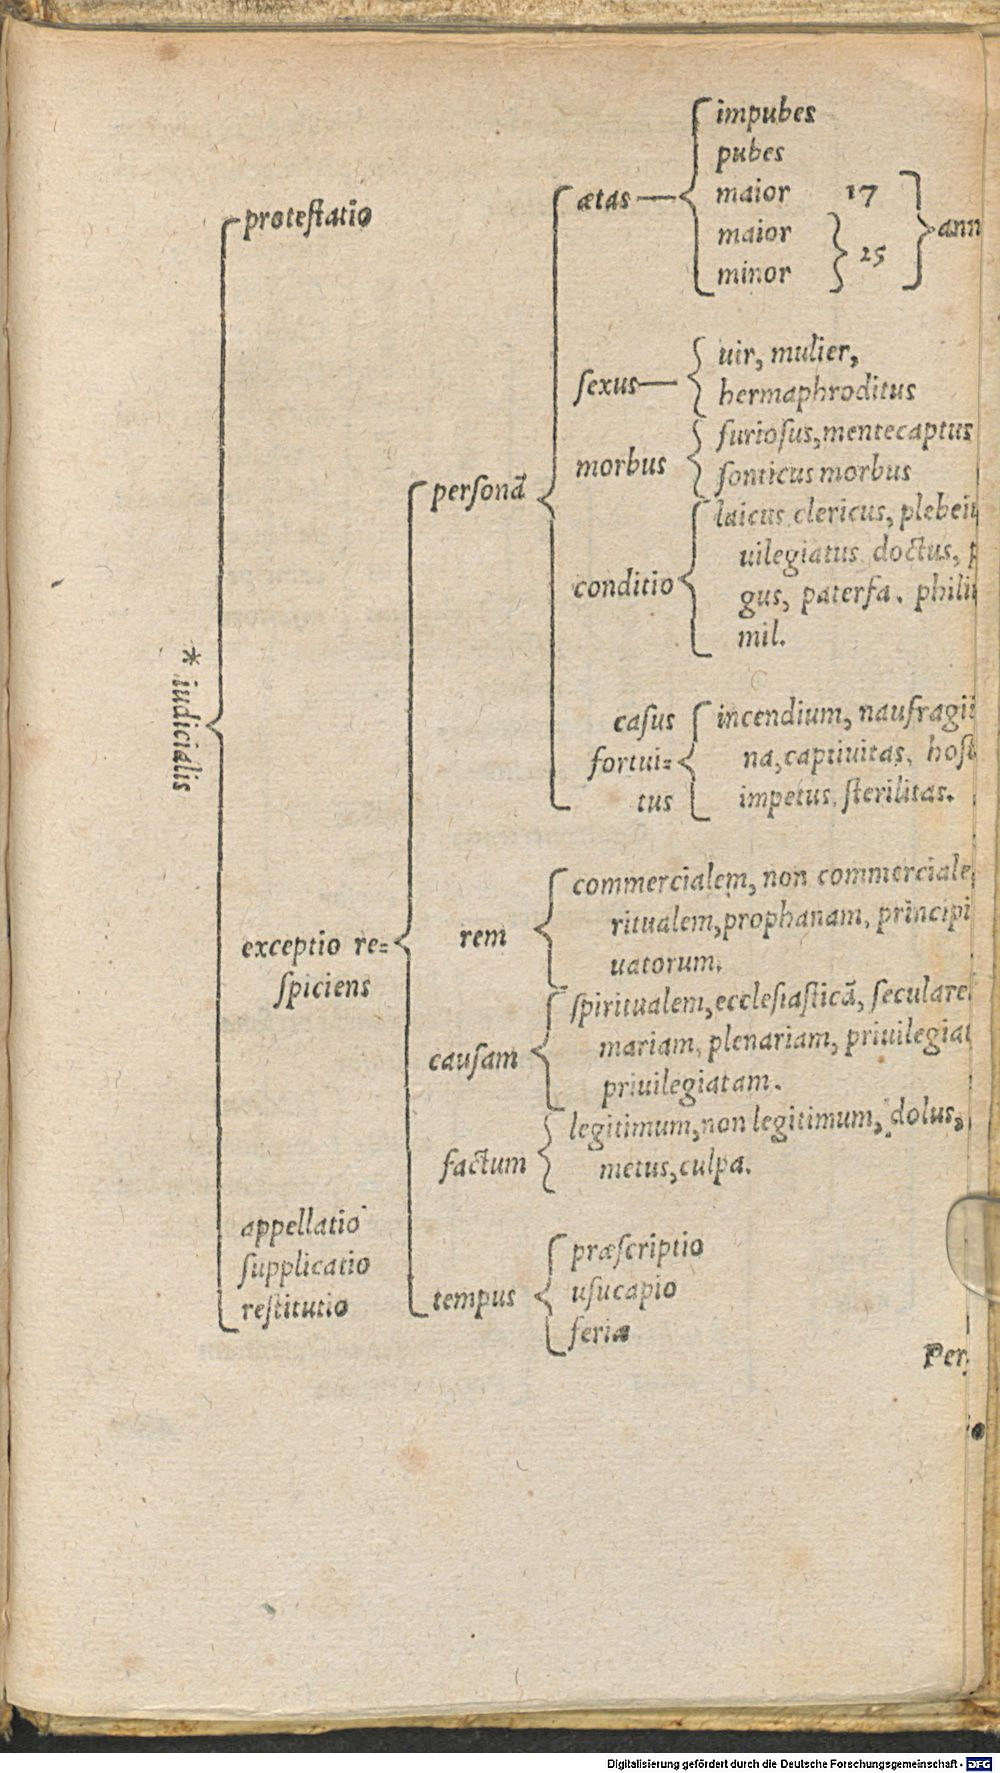 * iudicialis
protestatio
exceptio re=
spiciens
appellatio
supplicatio
restitutio
personã
ætas
impubes
pubes
maior 17
maior
minor
25
ann
sexus
uir, mulier,
hermaphroditus
morbus
furiosus, mentecaptus
sonticus morbus
conditio
laicus, clericus, plebeiu
uilegiatus, doctus, p
gus, paterfa. phili
mil.
casus
fortui=
tus
incendium, naufragii
na, captiuitas, host
impetus, sterilitas.
rem
commercialem, non commerciale
ritualem, prophanam, principi
uatorum.
causam
spiritualem, ecclesiasticã, seculare
mariam, plenariam, priuilegiat
priuilegiatam.
factum
legitimum, non legitimum, dolus,
metus, culpa.
tempus
præscriptio
usucapio
feriæ
Per
Digitalisierung gefördert durch die Deutsche Forschungsgemeinschaft - DFG